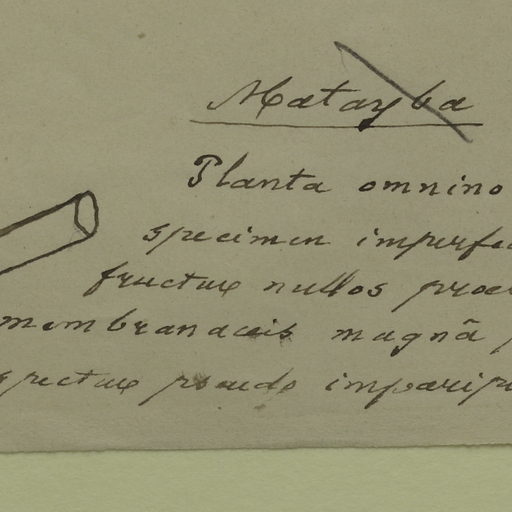 Matayba
Planta omnino
specimen imperfec
fructus nullos prae
membranaceis magnâ
spectus pseudo imparipi